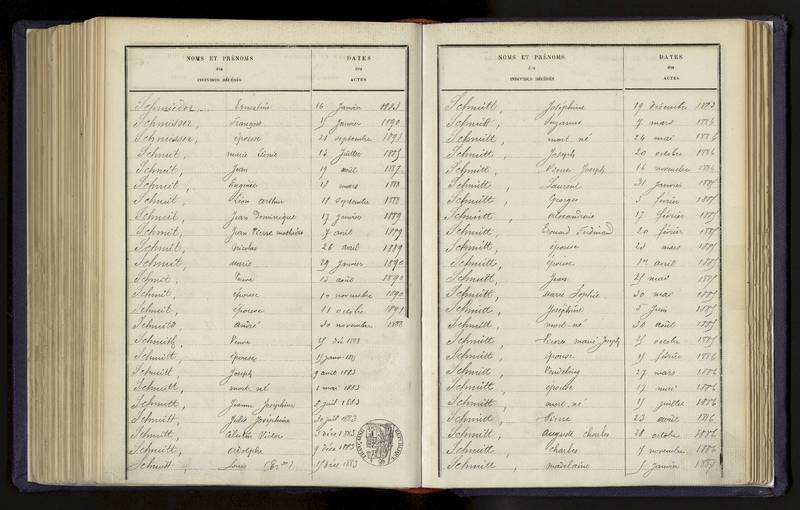 NOMS ET PRÉNOMS DATES
des des
INDIVIDUS DÉCÉDÉS ACTES
Schmieder Ernestine 16 Janvier 1883
Schmisser, François Janvier 1890
Schmisser, épouse 21 septembre 1891
Schmit, marie 13 Juillet 1885
Schmit, Jean 19 août 1887
Schmit, Eugénie 18 mars 1888
Schmit, Léon Arthur 18 septembre 1888
Schmit, Jean Dominique 17 Janvier 1889
Schmit, Jean Pierre mathieu 7 avril 1889
Schmit, Nicolas 26 avril 1889
Schmit, marie 29 Janvier 1890
Schmit, Veuve 13 août 1890
Schmit, épouse 10 novembre 1890
Schmit, épouse 11 octobre 1891
Schmits André 30 novembre 1888
Schmitt, Veuve déc 1883
Schmitt, épouse janv
Schmitt, Joseph 9 avril 1883
Schmitt, mort né 1 mai 1883
Schmitt, Jeanne Joséphine 8 juil 1883
Schmitt, Julie Joséphine 30 juil 1883
Schmitt, Célestin Victor déc 1883
Schmitt, Adolphe 9 déce 1883
Schmitt, Louis déce 1883
NOMS ET PRÉNOMS DATES
des des
INDIVIDUS DÉCÉDÉS ACTES
Schmitt Joséphine 19 Décembre 1883
Schmitt, Suzanne 7 mars 1884
Schmitt, mort né 24 mai
Schmitt, Joseph 20 octobre
Schmitt, Pierre Joseph 16 novembre
Schmitt, Laurent 31 Janvier 1885
Schmitt, Georges février 1885
Schmitt, Alexandrine 17 février 1885
Schmitt, Edouard Ferdinand 20 février 1885
Schmitt, épouse 23 mars 1885
Schmitt, épouse 1er avril 1885
Schmitt, Jean mai 1885
Schmitt, Marie Sophie 30 mai 1885
Schmitt, Joséphine 5 Juin 1885
Schmitt, mort-né 30 août 1885
Schmitt, Pierre marie Joseph octobre 1885
Schmitt, épouse février 1886
Schmitt, Vendelin 27 mars 1886
Schmitt, épouse 17 mai 1886
Schmitt, mort-né juillet 1886
Schmitt, Pierre 23 août 1886
Schmitt, Auguste Charles 28 octobre 1886
Schmitt, Charles novembre 1886
Schmitt, madelaine Janvier 1887